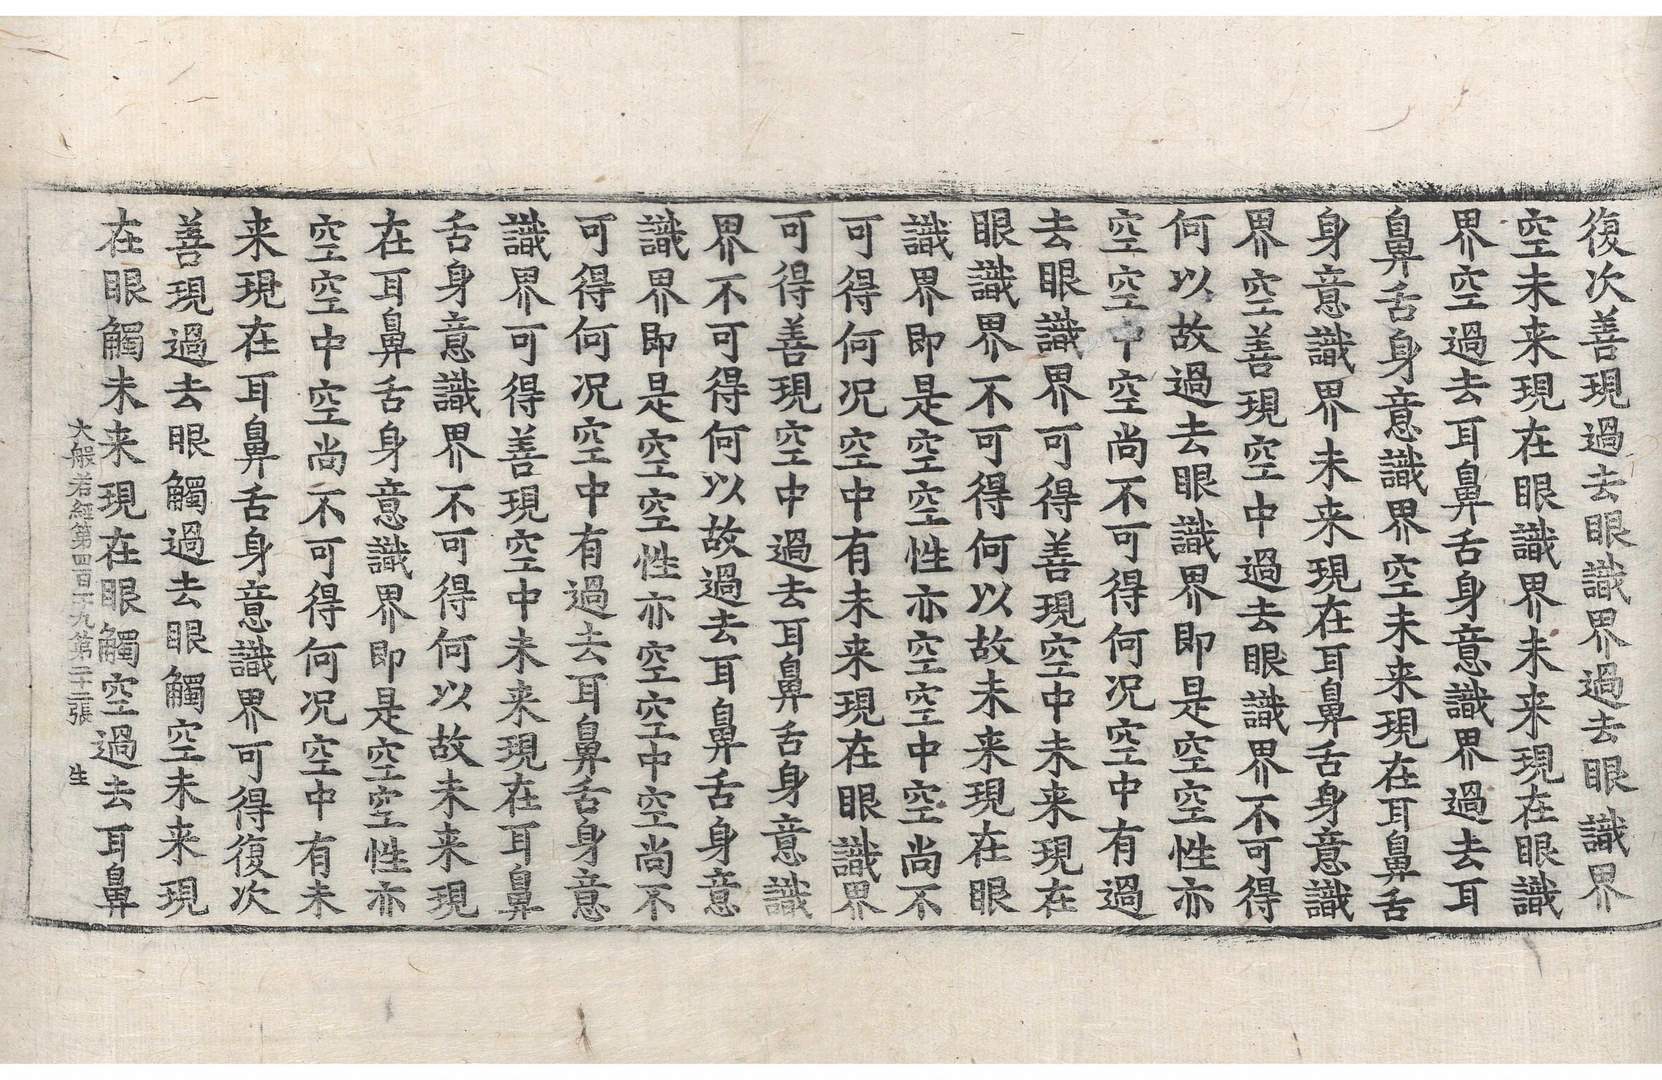 復次善現過去眼識界過去眼識界
空未来現在眼識界未来現在眼識
界空過去耳鼻舌身意識界過去耳
鼻舌身意識界空未来現在耳鼻舌
身意識界未来現在耳鼻舌身意識
界空善現空中過去眼識界不可得
何以故過去眼識界即是空空性亦
空空中空尚不可得何况空中有過
去眼識界可得善現空中未来現在
眼識界不可得何以故未来現在眼
識界即是空空性亦空空中空尚不
可得何况空中有未来現在眼識界
可得善現空中過去耳鼻舌身意識
界不可得何以故過去耳鼻舌身意
識界即是空空性亦空空中空尚不
可得何况空中有過去耳鼻舌身意
識界可得善現空中未来現在耳鼻
舌身意識界不可得何以故未来現
在耳鼻舌身意識界即是空空性亦
空空中空尚不可得何况空中有未
来現在耳鼻舌身意識界可得復次
善現過去眼觸過去眼觸空未来現
在眼觸未来現在眼觸空過去耳鼻
大般若經第四百一十九第二十二張 生